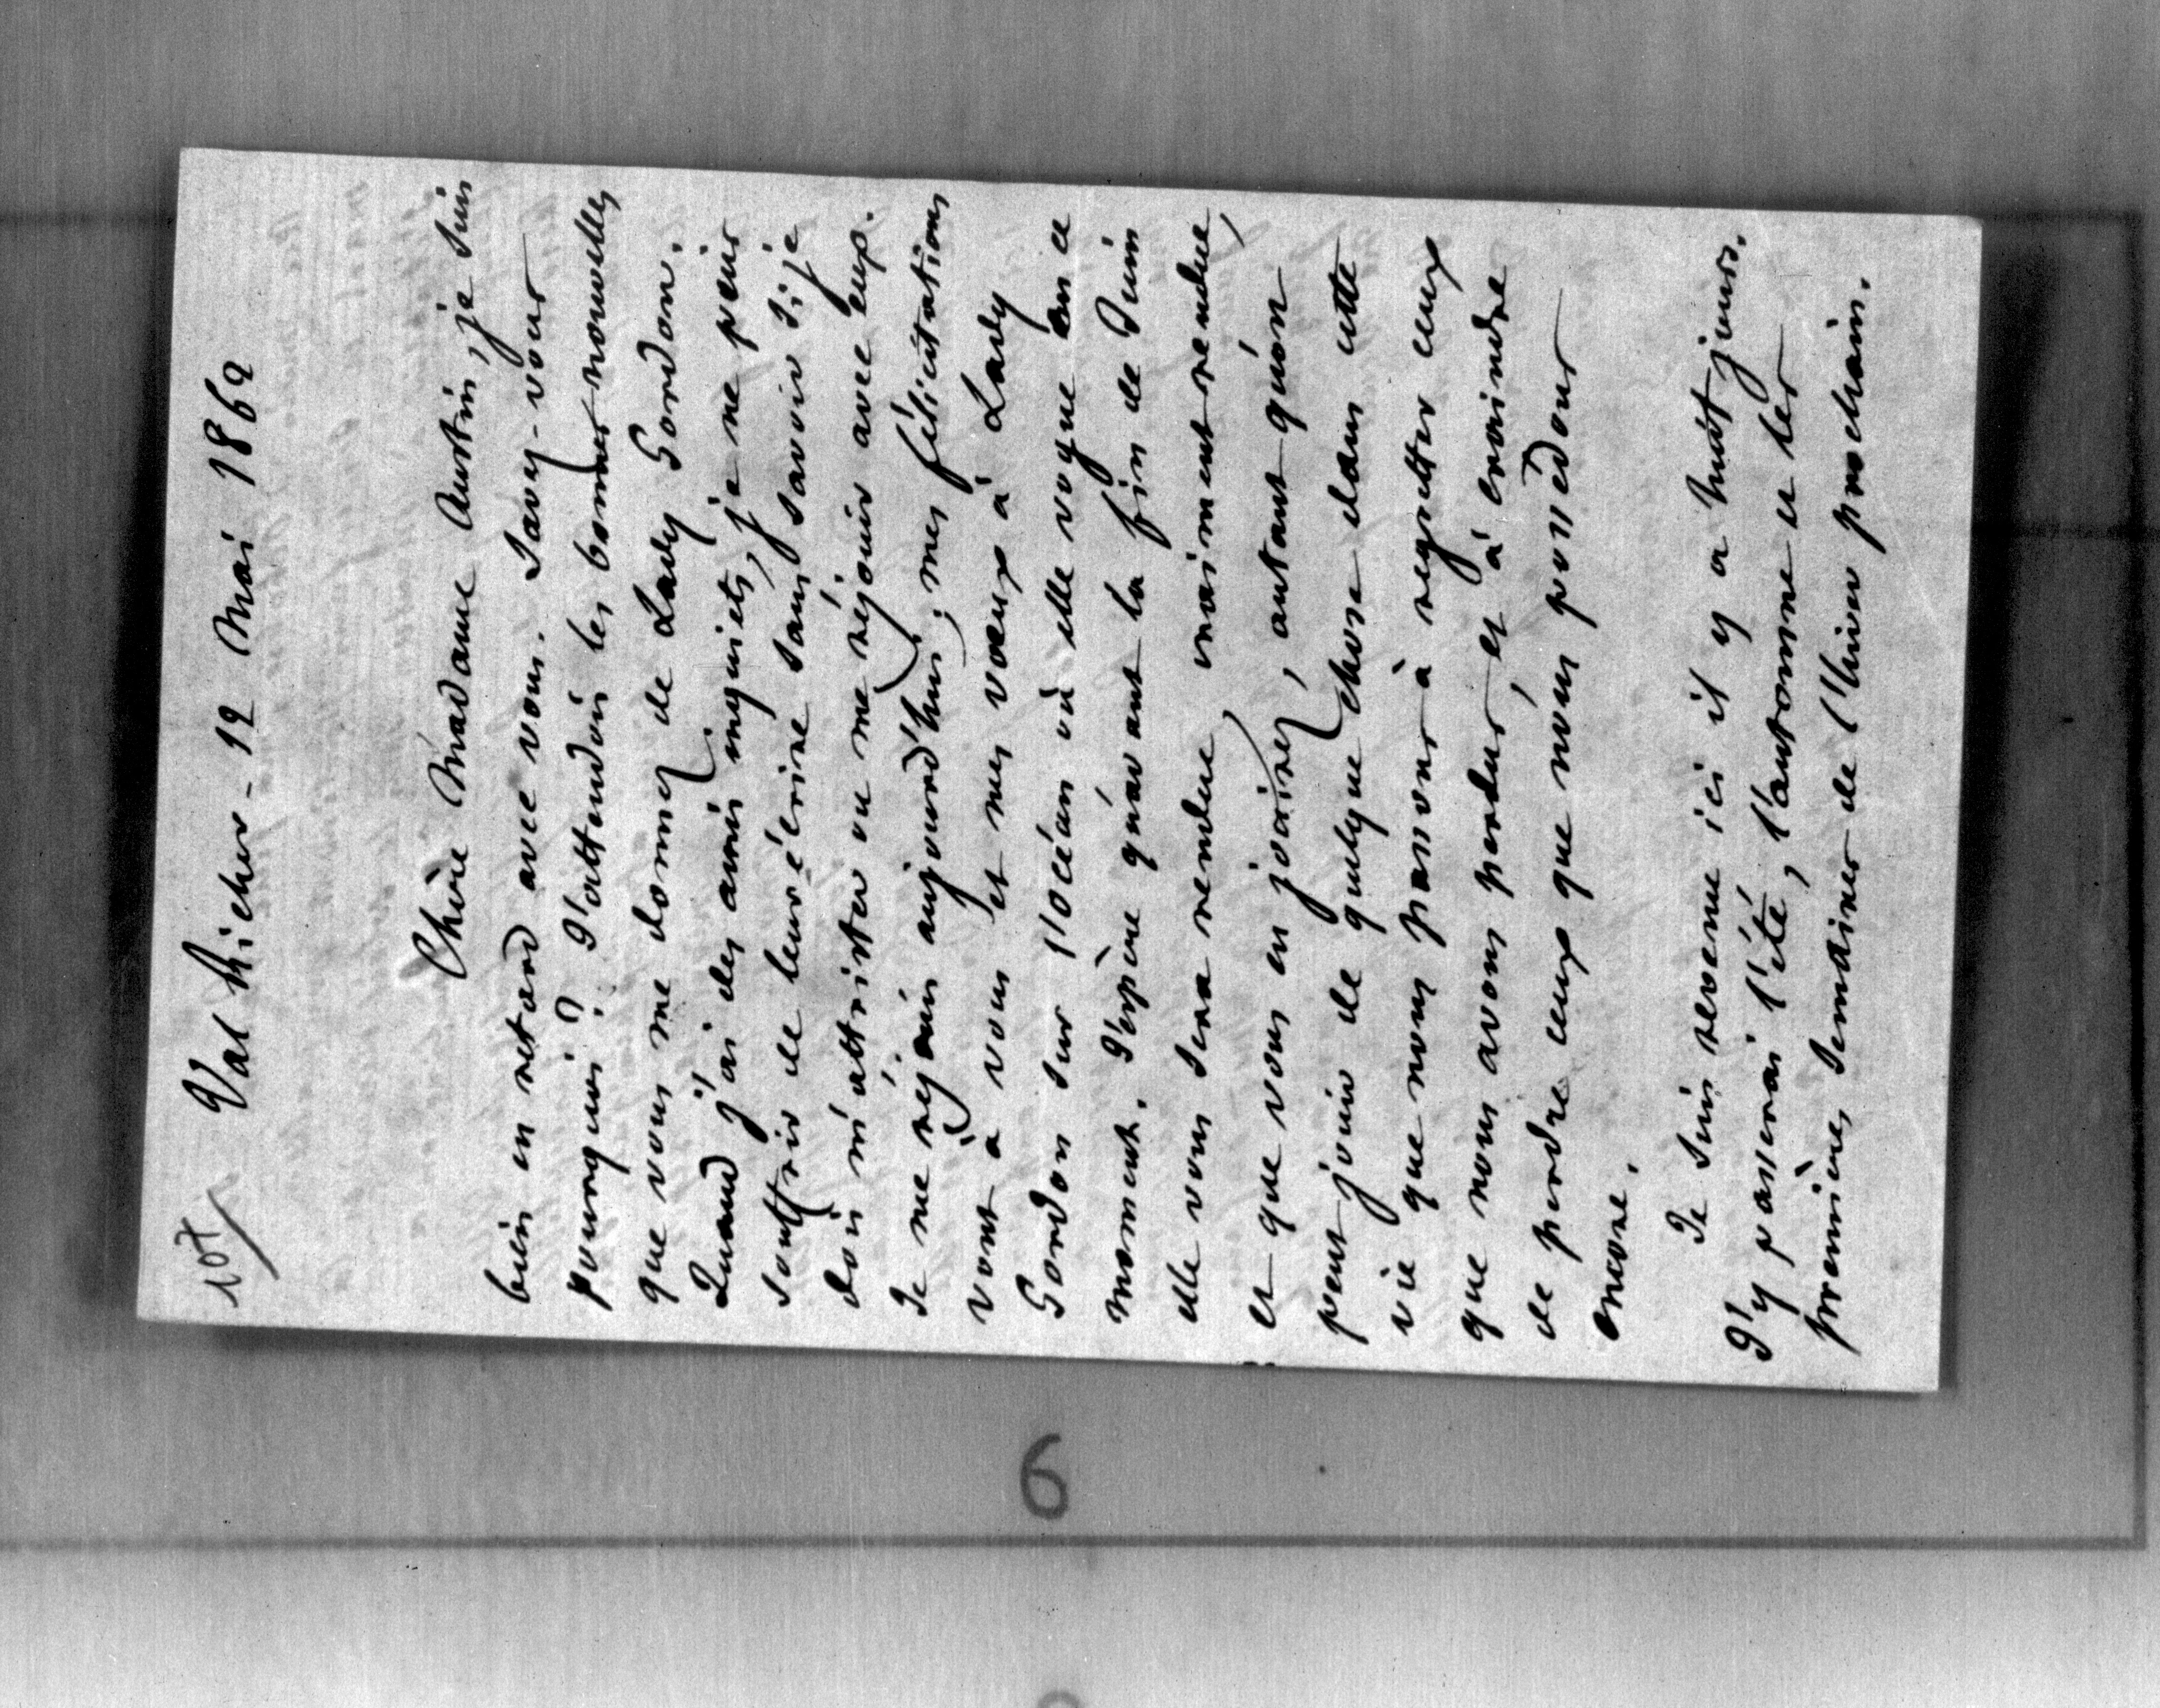 107
Val Richer - 12 Mai 1862
Chère Madame Austin, je suis
bien en retard avec vous. Savez-vous
pourquoi ? J'attendais les bonnes nouvelles
que vous me donnez de Lady Gordon.
Quand j'ai des amis inquiets, je ne puis
souffrir de leur écrire sans savoir si je
dois m'attrister ou me réjouir avec eux.
Je me réjouis aujourd'hui ; mes félicitations
vont à vous et mes vœux à Lady
Gordon sur l'océan où elle vogue en ce
moment. J'espère qu'avant la fin de Juin
elle vous sera rendue, vraiment rendue,
et que vous en jouirez, autant qu'on
peut jouir de quelque chose dans cette
vie que nous passons à regretter ceux
que nous avons perdus, et à craindre
de perdre ceux que nous possédons
encore.
Je suis revenu ici il y a huit jours.
J'y passerai l'été, l'automne et les
premières semaines de l'hiver prochain.
6